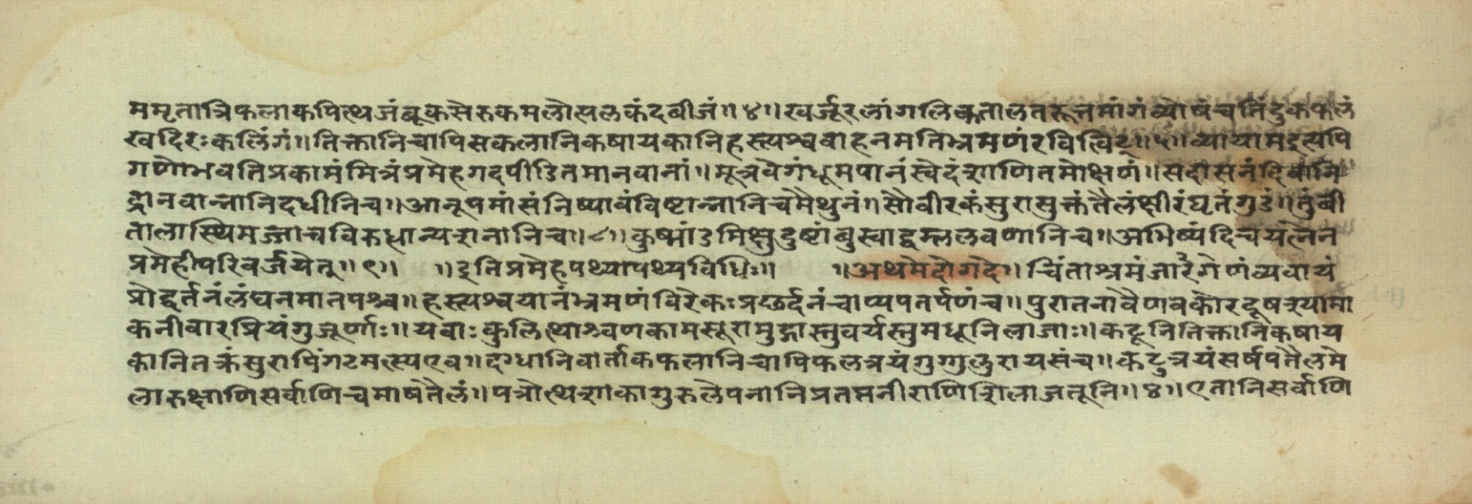 ममृतात्रिफलाकपित्थजंबूकसेरुकमलोत्पलकंदबीजं॥४॥खर्जूरलांगलिकतालतरूत्तमांगंव्योषंचतिंदुकफलं
खदिरःकलिंगं॥तिक्तानिचापिसकलानिकषायकानिहस्त्यश्ववाहनमतिभ्रमणंरवित्विट्॥५॥व्यायामइत्यपि
गणोभवतिप्रकामंमित्रंप्रमेहगदपीडितमानवानां॥मूत्रवेगंधूमपानंस्वेदंशोणितमोक्षणं॥सदासनंदिवानि
द्रांनवान्नानिदधीनिच॥आनूपमांसंनिष्पावंपिष्टान्नानिचमैथुनं॥सौवीरकंसुरासुक्तंतैलंक्षीरंघृतंगुडं॥तुंबी
तालास्थिमज्जाचविरुद्धान्यशनानिच॥८॥कुष्मांडमिक्षुदुष्टांबुस्वाद्वम्ललवणानिच॥अभिष्यंदिचयत्नेन
प्रमेहीपरिवर्जयेत्॥९॥ ॥इतिप्रमेहपथ्यापथ्यविधिः॥ ॥अथमेदोगदे॥चिंताश्रमंजागरेणंव्यवायं
प्रोद्वर्तनंलंघनमातपश्च॥हस्त्यश्वयानंभ्रमणंविरेकःप्रछर्दनंचाप्यपतर्पणंच॥पुरातनावैणवकोरदूषश्यामा
कनीवारप्रियंगुजूर्णाः॥यवाःकुलित्थाश्चणकामसूरामुद्गास्तुवर्यस्तुमधूनिलाजाः॥कटूनितिक्तानिकषाय
कानितक्रंसुराचिंगटमत्स्यएव॥दग्धानिवार्ताकफलानिचापिफलत्रयंगुग्गुलुरायसंच॥कटुत्रयंसर्षपतैलमे
लारुक्षाणिसर्वाणिचमाषतैलं॥पत्रोत्थशाकागुरुलेपनानिप्रतप्तनीराणिशिलाजतूनि॥४॥एतानिसर्वाणि